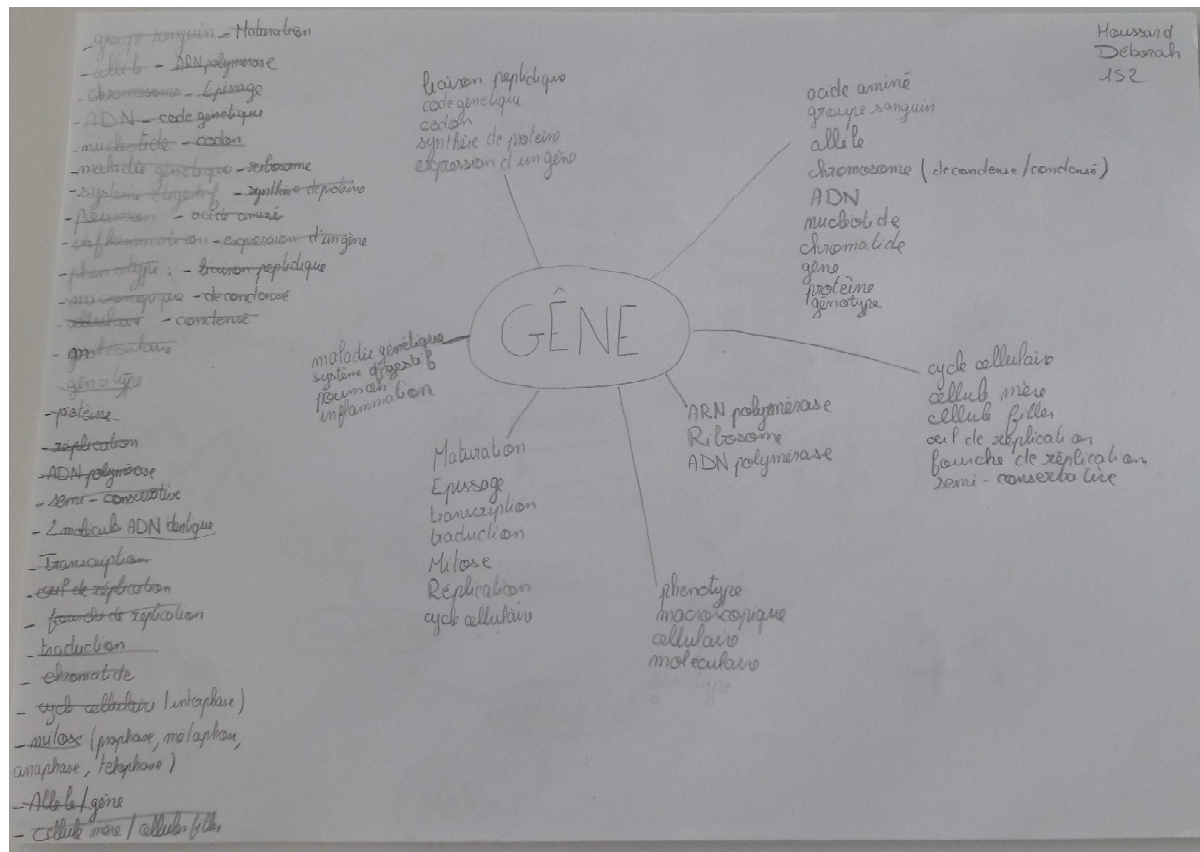 - groupe sanguin - Maturation
- allèle - ARN polymérase
- chromosome - Epissage
- ADN - code génétique
- nucleotide - codon
- maladie génétique - ribosome
- système digestif - synthèse de protéine
- poumon - acide aminé
- inflammation - expression d'un gène
- phenotype : - liaison peptidique
- macroscopique - decondensé
- cellulaire - condensé
- moléculaire
génotype
- protéine
- réplication
- ADN polymérase
- semi-conservative
- 2 molécule ADN identique
- Transcription
- oeil de réplication
- fourche de réplication
- traduction
- chromatide
- cycle cellulaire (interphase)
- mitose (prophase, métaphase,
anaphase, telophase)
- Allèle / gène
- Cellule mère / cellules filles
liaison peptidique
code génétique
codon
synthèse de protéine
expression d'un gène
Houssard
Déborah
1S2
acide aminé
groupe sanguin
allèle
chromosome (decondense/condensé)
ADN
nucléotide
chromatide
gêne
protéine
génotype
GÊNE
maladie génétique
système digestif
poumon
inflammation
cycle cellulaire
cellule mère
cellule filles
oeil de réplication
fourche de réplication
semi-conservative
ARN polymérase
Ribosome
ADN polymérase
Maturation
Epissage
transcription
traduction
Mitose
Réplication
cycle cellulaire
phenotype
macroscopique
cellulaire
moléculaire